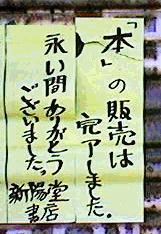 「本」の販売は
完了しました。
永い間ありがとう
ございました。
新陽堂
書店